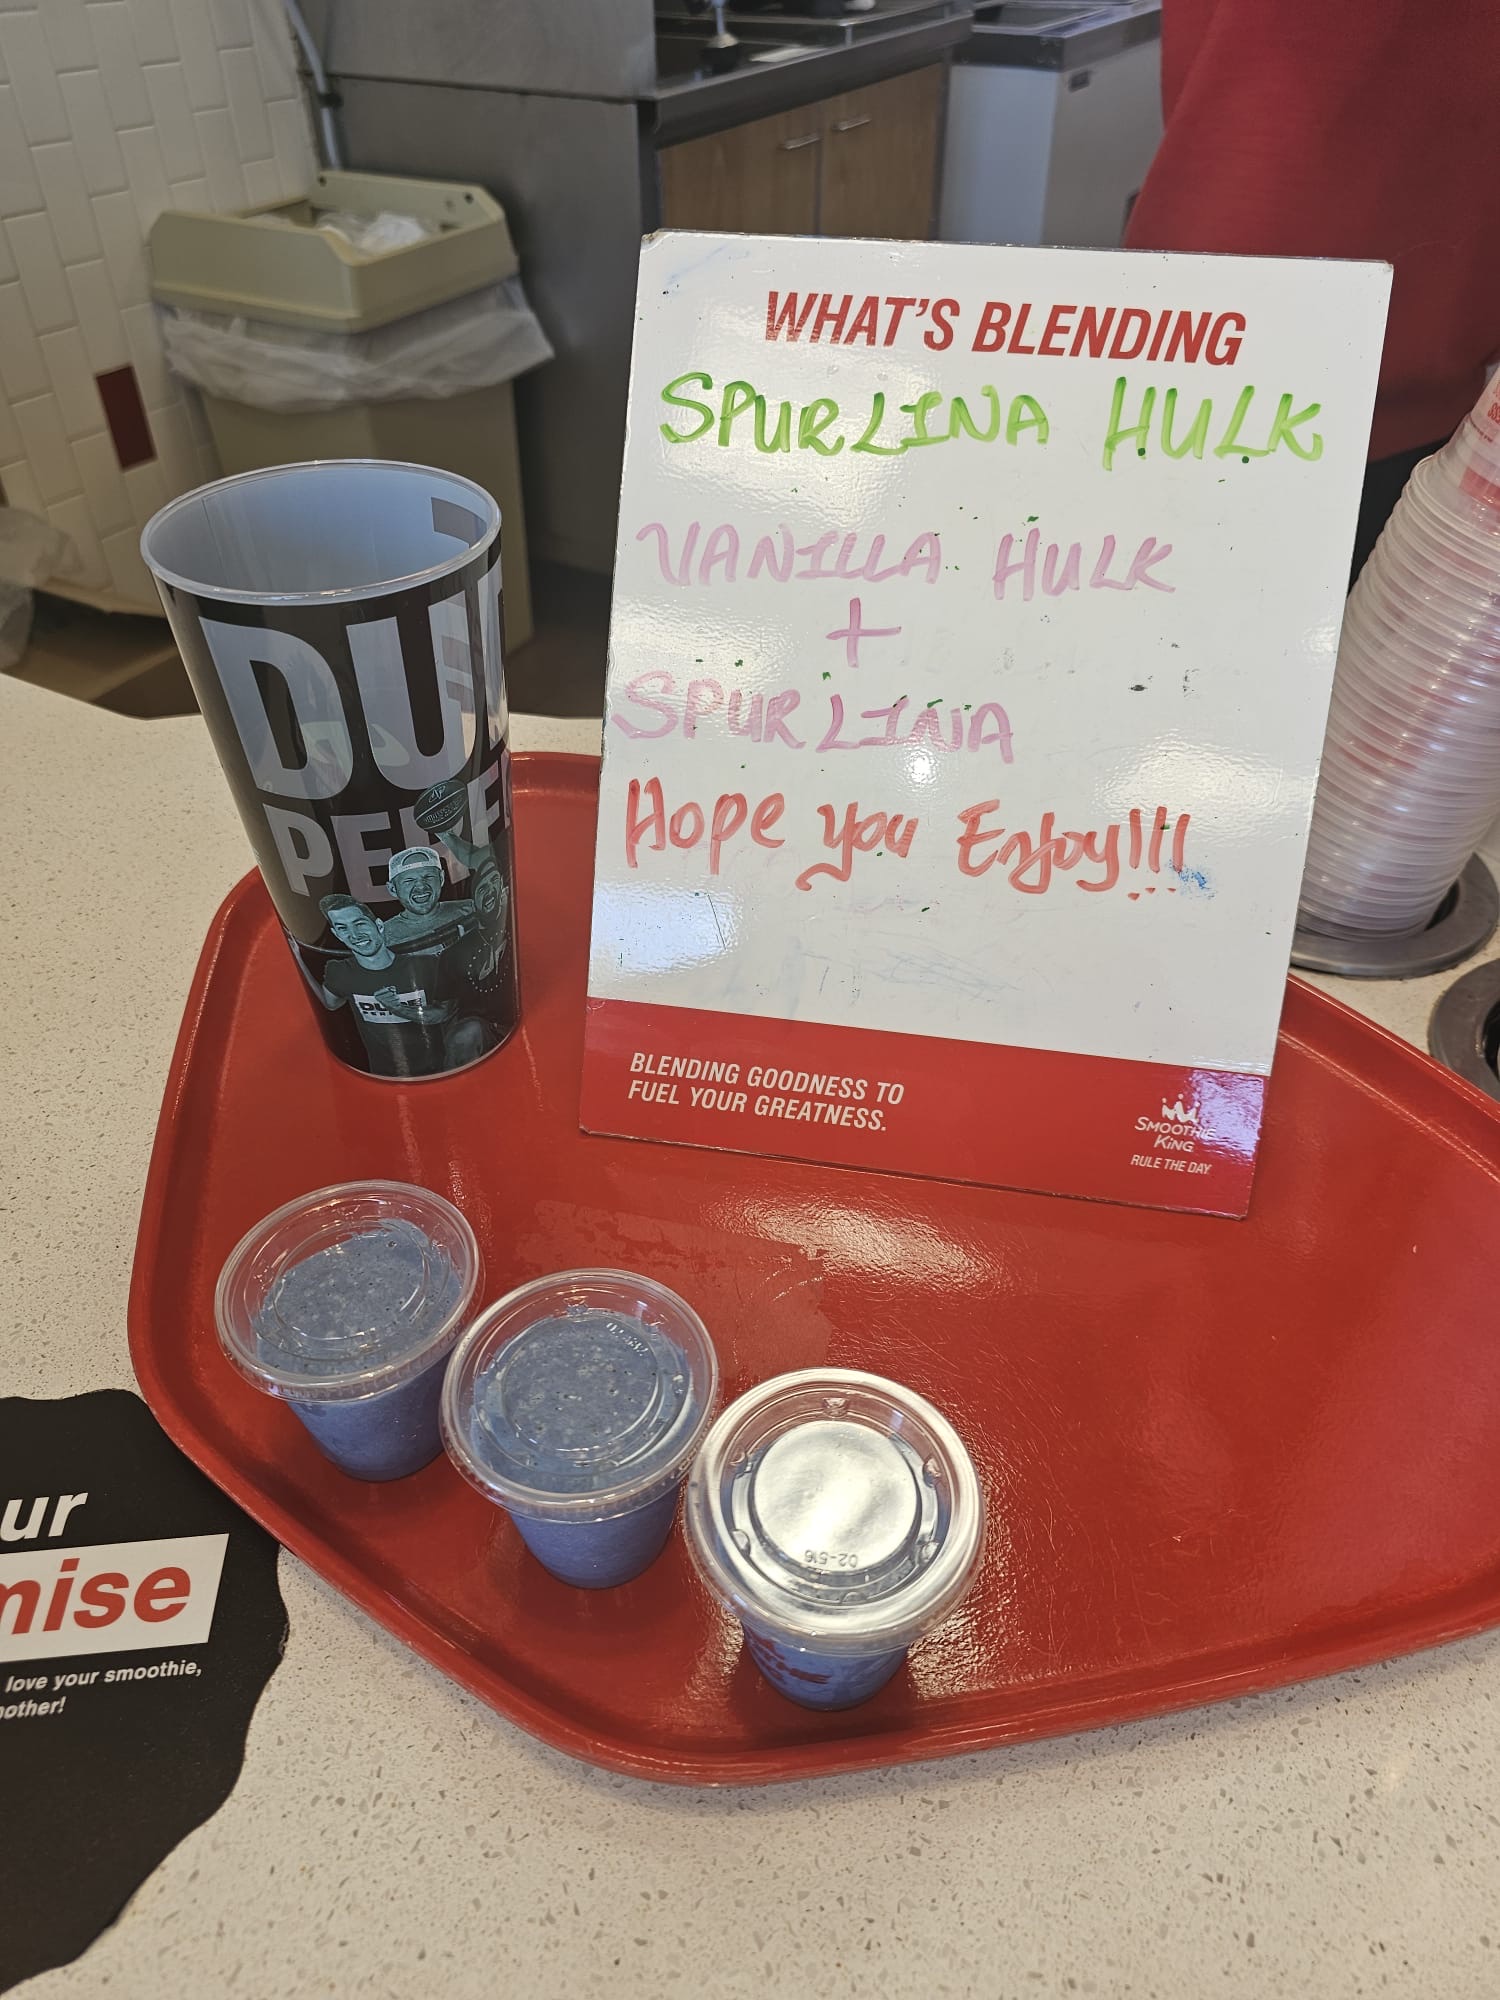 WHAT'S BLENDING
SPURLINA HULK
VANILLA HULK
+
SPURLINA
Hope you Enjoy!!!
BLENDING GOODNESS TO
FUEL YOUR GREATNESS.
SMOOTHIE
KING
RULE THE DAY
DU
PERF
DUDE
PERF
02-516
ur
mise
love your smoothie,
nother!